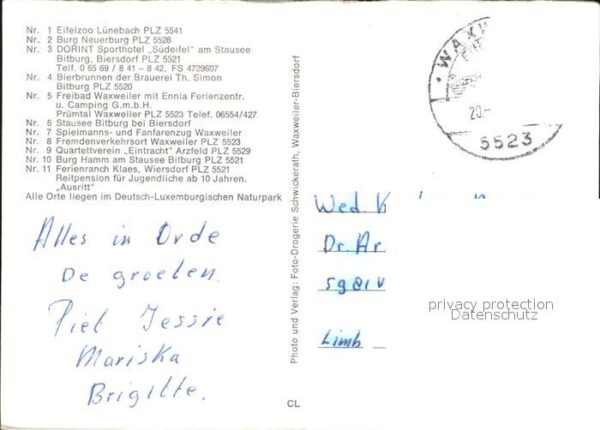 Nr. 1 Eifelzoo Lünebach PLZ 5541
Nr. 2 Burg Neuerburg PLZ 5528
Nr. 3 DORINT Sporthotel „Südeifel" am Stausee
Bitburg, Biersdorf PLZ 5521
Telf. 0 65 69 / 8 41 – 8 42, FS 4729607
Nr. 4 Bierbrunnen der Brauerei Th. Simon
Bitburg PLZ 5520
Nr. 5 Freibad Waxweiler mit Ennia Ferienzentr.
u. Camping G.m.b.H.
Prümtal Waxweiler PLZ 5523 Telef. 06554/427
Nr. 6 Stausee Bitburg bei Biersdorf
Nr. 7 Spielmanns- und Fanfarenzug Waxweiler
Nr. 8 Fremdenverkehrsort Waxweiler PLZ 5523
Nr. 9 Quartettverein „Eintracht" Arzfeld PLZ 5529
Nr. 10 Burg Hamm am Stausee Bitburg PLZ 5521
Nr. 11 Ferienranch Klaes, Wiersdorf PLZ 5521
Reitpension für Jugendliche ab 10 Jahren.
„Ausritt"
Alle Orte liegen im Deutsch-Luxemburgischen Naturpark
Alles in Orde
De groeten.
Piet Jessie
Mariska
Brigitte.
CL
Photo und Verlag: Foto-Drogerie Schwickerath, Waxweiler-Biersdorf
WAXW
20.-
5523
Wed. K
Dr. Ar
Limb
privacy protection
Datenschutz